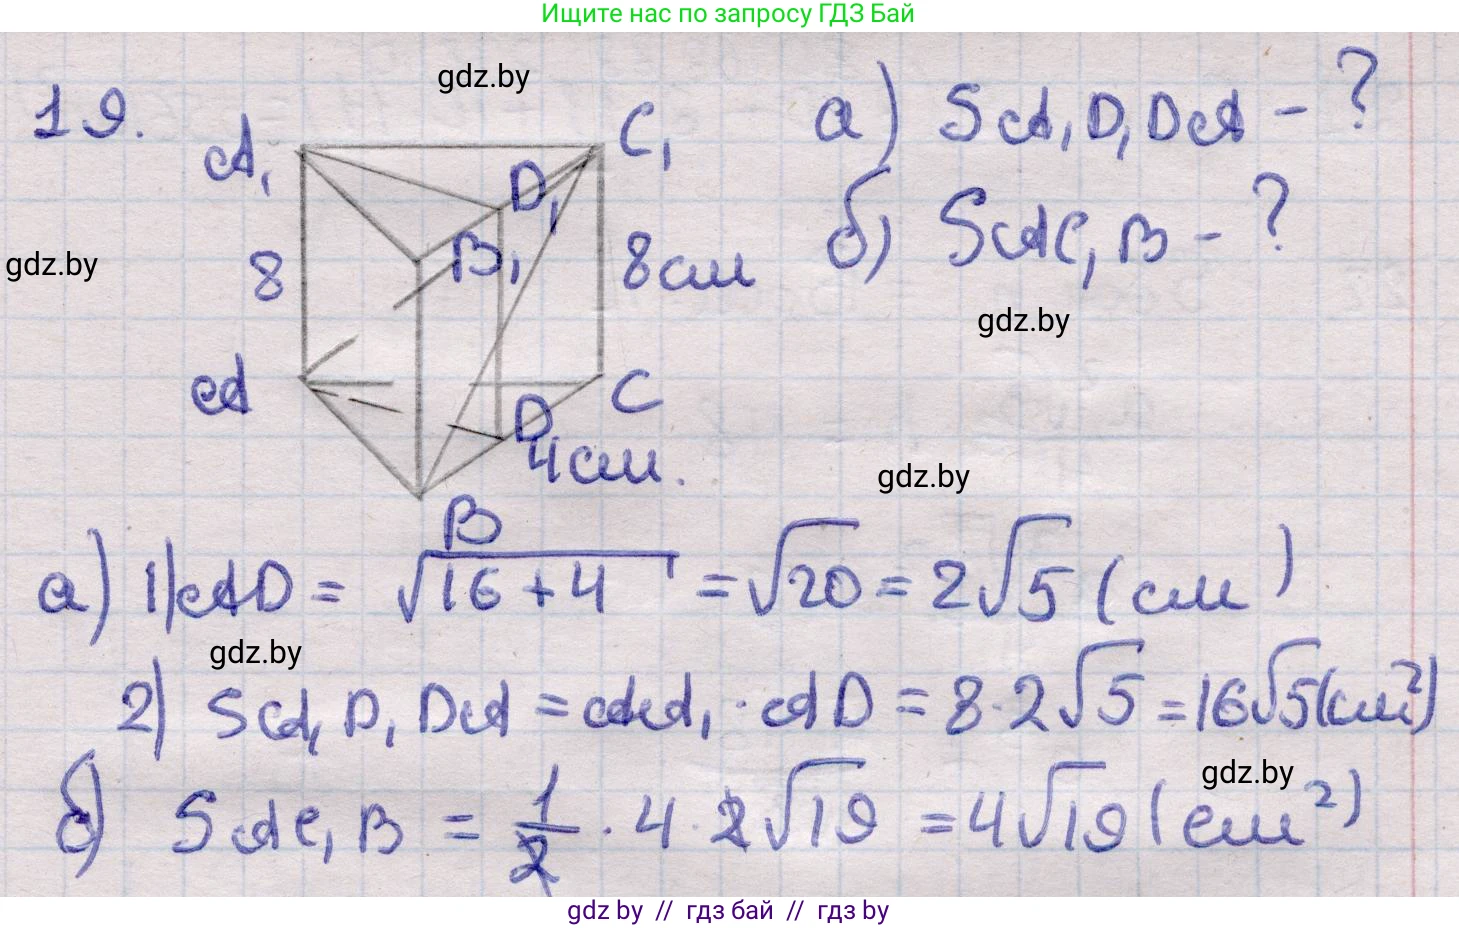 Ищите нас по запросу ГДЗ Бай
gdz.by
19.
A₁
C₁
а) SA₁D₁DA - ?
D₁
б) SAC₁B - ?
B₁
8
8см
gdz.by
gdz.by
A
C
D
4см.
gdz.by
B
а) 1) AD = √16 + 4 = √20 = 2√5 (см)
gdz.by
2) SA₁D₁DA = AA₁ · AD = 8 · 2√5 = 16√5 (см²)
gdz.by
б) SAC₁B = 1/2 · 4 · 2√19 = 4√19 (см²)
gdz by // гдз бай // гдз by